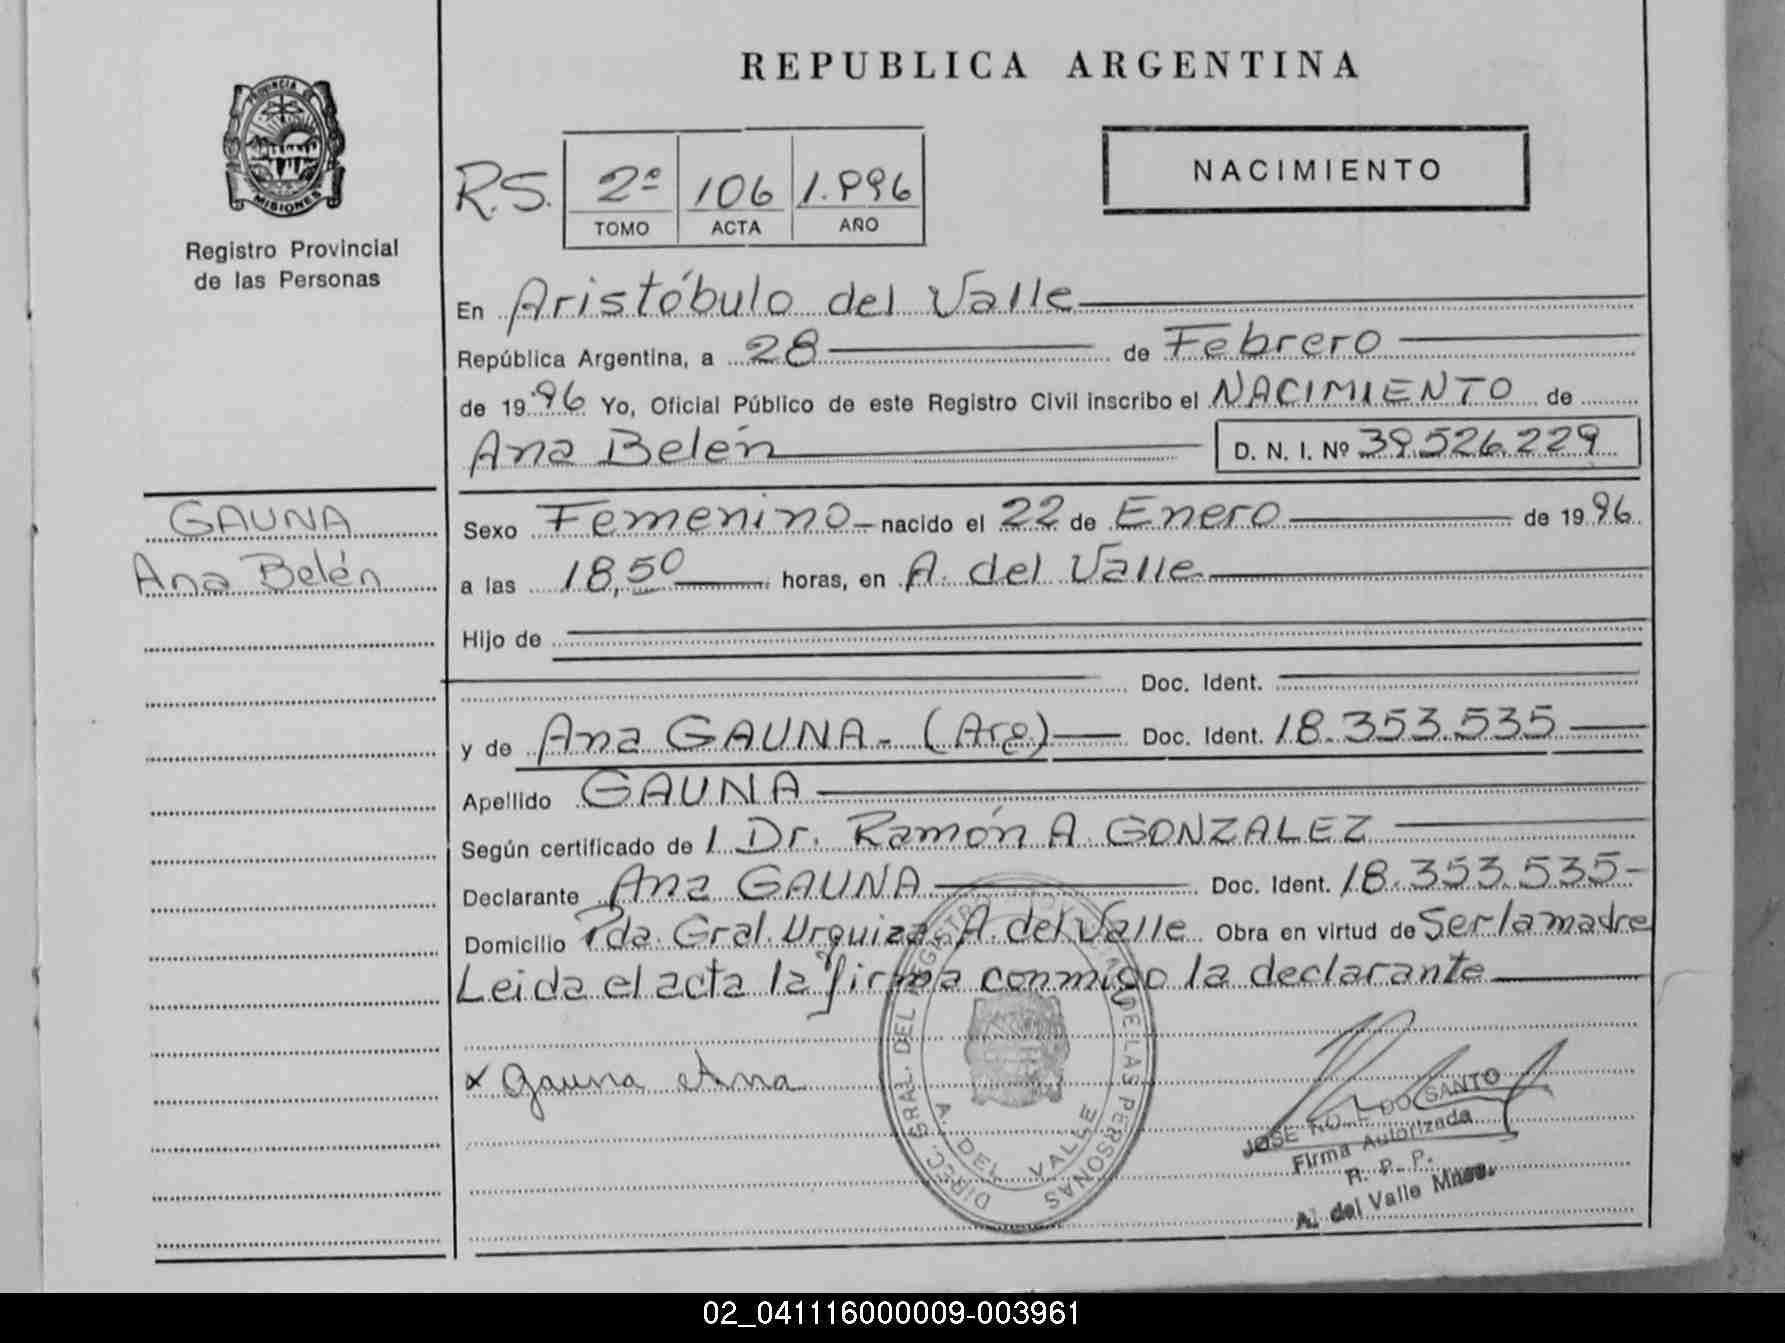 REPUBLICA ARGENTINA
PROVINCIA DE
MISIONES
Registro Provincial
de las Personas
NACIMIENTO
R.S. 2º 106 1.996
TOMO ACTA AÑO
En Aristóbulo del Valle
República Argentina, a 28 de Febrero
de 1996 Yo, Oficial Público de este Registro Civil inscribo el NACIMIENTO de
Ana Belén D. N. I. Nº 39.526.229
GAUNA
Ana Belén
Sexo Femenino nacido el 22 de Enero de 1996
a las 18,50 horas, en A. del Valle
Hijo de
Doc. Ident.
y de Ana GAUNA - (Arg) Doc. Ident. 18.353.535
Apellido GAUNA
Según certificado de / Dr. Ramón A. GONZALEZ
Declarante Ana GAUNA Doc. Ident. 18.353.535-
Domicilio Pda. Gral. Urquiza A. del Valle Obra en virtud de Ser la madre
Leida el acta la firma conmigo la declarante
x Gauna Ana
DIREC. GRAL. DEL REGISTRO DE LAS PERSONAS
A. DEL VALLE
JOSE DO SANTO
Firma Autorizada
R. P. P.
A. del Valle Mnes.
02_041116000009-003961